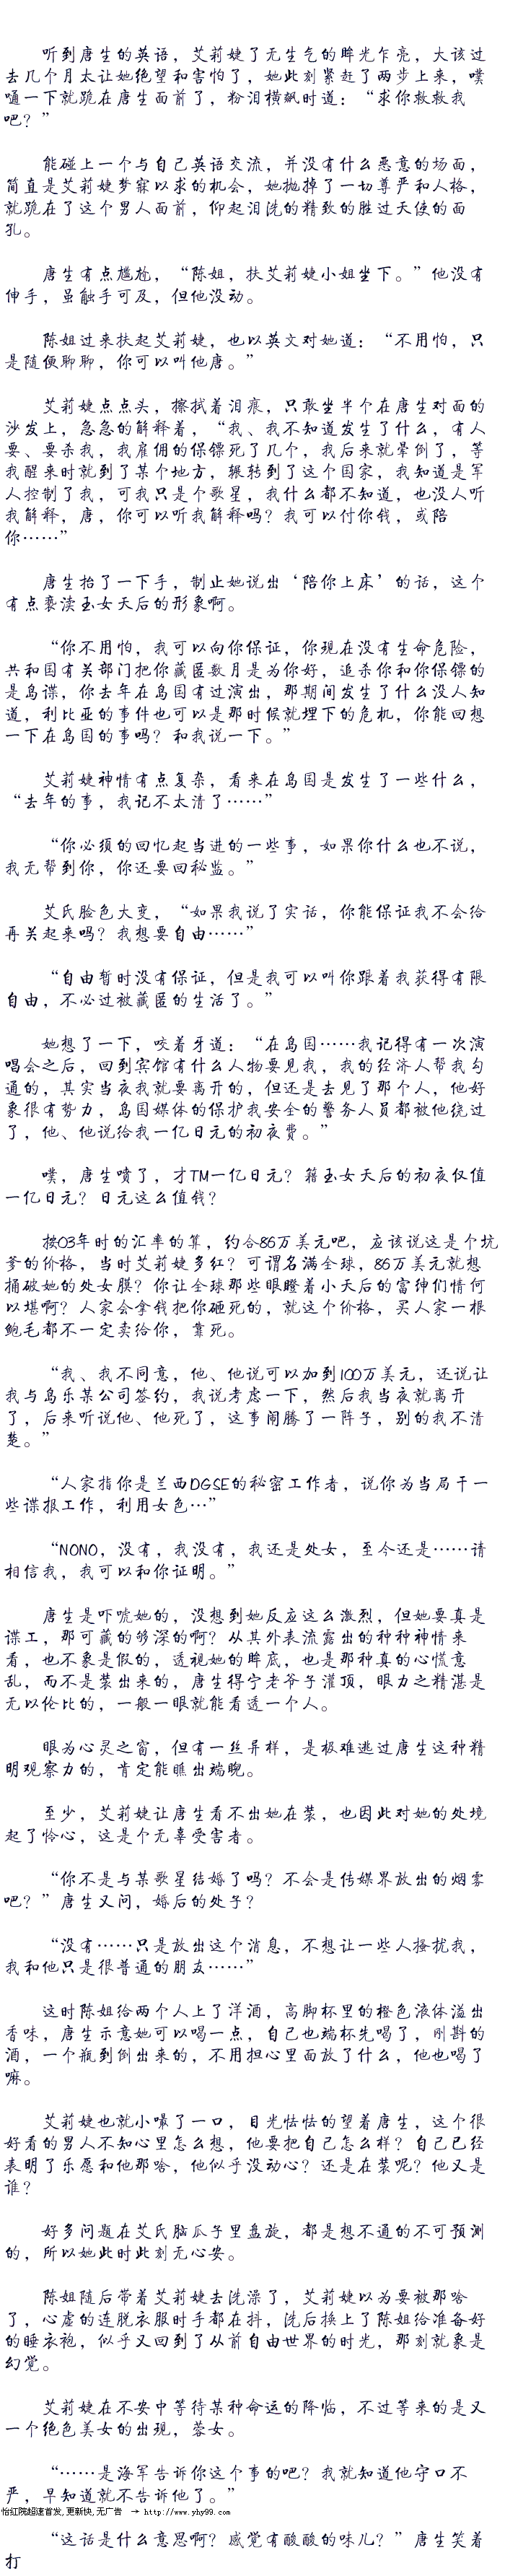 听到唐生的英语，艾莉婕了无生气的眸光乍亮，大该过
去几个月太让她绝望和害怕了，她此刻紧赶了两步上来，噗
嗵一下就跪在唐生面前了，粉泪横飙时道：“求你救救我
吧？”
能碰上一个与自己英语交流，并没有什么恶意的场面，
简直是艾莉婕梦寐以求的机会，她抛掉了一切尊严和人格，
就跪在了这个男人面前，仰起泪洗的精致的胜过天使的面
孔。
唐生有点尴尬，“陈姐，扶艾莉婕小姐坐下。”他没有
伸手，虽触手可及，但他没动。
陈姐过来扶起艾莉婕，也以英文对她道：“不用怕，只
是随便聊聊，你可以叫他唐。”
艾莉婕点点头，擦拭着泪痕，只敢坐半个在唐生对面的
沙发上，急急的解释着，“我、我不知道发生了什么，有人
要、要杀我，我雇佣的保镖死了几个，我后来就晕倒了，等
我醒来时就到了某个地方，辗转到了这个国家，我知道是军
人控制了我，可我只是个歌星，我什么都不知道，也没人听
我解释，唐，你可以听我解释吗？我可以付你钱，或陪
你……”
唐生抬了一下手，制止她说出‘陪你上床’的话，这个
有点亵渎玉女天后的形象啊。
“你不用怕，我可以向你保证，你现在没有生命危险，
共和国有关部门把你藏匿数月是为你好，追杀你和你保镖的
是岛谍，你去年在岛国有过演出，那期间发生了什么没人知
道，利比亚的事件也可以是那时候就埋下的危机，你能回想
一下在岛国的事吗？和我说一下。”
艾莉婕神情有点复杂，看来在岛国是发生了一些什么，
“去年的事，我记不太清了……”
“你必须的回忆起当进的一些事，如果你什么也不说，
我无帮到你，你还要回秘监。”
艾氏脸色大变，“如果我说了实话，你能保证我不会给
再关起来吗？我想要自由……”
“自由暂时没有保证，但是我可以叫你跟着我获得有限
自由，不必过被藏匿的生活了。”
她想了一下，咬着牙道：“在岛国……我记得有一次演
唱会之后，回到宾馆有什么人物要见我，我的经济人帮我勾
通的，其实当夜我就要离开的，但还是去见了那个人，他好
象很有势力，岛国媒体的保护我安全的警务人员都被他绕过
了，他、他说给我一亿日元的初夜费。”
噗，唐生喷了，才TM一亿日元？籍玉女天后的初夜仅值
一亿日元？日元这么值钱？
按03年时的汇率的算，约合86万美元吧，应该说这是个坑
爹的价格，当时艾莉婕多红？可谓名满全球，86万美元就想
捅破她的处女膜？你让全球那些眼瞪着小天后的富绅们情何
以堪啊？人家会拿钱把你砸死的，就这个价格，买人家一根
鲍毛都不一定卖给你，靠死。
“我、我不同意，他、他说可以加到100万美元，还说让
我与岛乐某公司签约，我说考虑一下，然后我当夜就离开
了，后来听说他、他死了，这事闹腾了一阵子，别的我不清
楚。”
“人家指你是兰西DGSE的秘密工作者，说你为当局干一
些谍报工作，利用女色…”
“NONO，没有，我没有，我还是处女，至今还是……请
相信我，我可以和你证明。”
唐生是吓唬她的，没想到她反应这么激烈，但她要真是
谍工，那可藏的够深的啊？从其外表流露出的种种神情来
看，也不象是假的，透视她的眸底，也是那种真的心慌意
乱，而不是装出来的，唐生得宁老爷子灌顶，眼力之精湛是
无以伦比的，一般一眼就能看透一个人。
眼为心灵之窗，但有一丝异样，是极难逃过唐生这种精
明观察力的，肯定能瞧出端睨。
至少，艾莉婕让唐生看不出她在装，也因此对她的处境
起了怜心，这是个无辜受害者。
“你不是与某歌星结婚了吗？不会是传媒界放出的烟雾
吧？”唐生又问，婚后的处子？
“没有……只是放出这个消息，不想让一些人搔扰我，
我和他只是很普通的朋友……”
这时陈姐给两个人上了洋酒，高脚杯里的橙色液体溢出
香味，唐生示意她可以喝一点，自己也端杯先喝了，刚斟的
酒，一个瓶到倒出来的，不用担心里面放了什么，他也喝了
嘛。
艾莉婕也就小嘬了一口，目光怯怯的望着唐生，这个很
好看的男人不知心里怎么想，他要把自己怎么样？自己已经
表明了乐愿和他那啥，他似乎没动心？还是在装呢？他又是
谁？
好多问题在艾氏脑瓜子里盘旋，都是想不通的不可预测
的，所以她此时此刻无心安。
陈姐随后带着艾莉婕去洗澡了，艾莉婕以为要被那啥
了，心虚的连脱衣服时手都在抖，洗后换上了陈姐给准备好
的睡衣袍，似乎又回到了从前自由世界的时光，那刻就象是
幻觉。
艾莉婕在不安中等待某种命运的降临，不过等来的是又
一个绝色美女的出现，蓉女。
“……是海军告诉你这个事的吧？我就知道他守口不
严，早知道就不告诉他了。”
怡红院超速首发,更新快,无广告 → http://www.yhy99.com
“这话是什么意思啊？感觉有酸酸的味儿？”唐生笑着
打